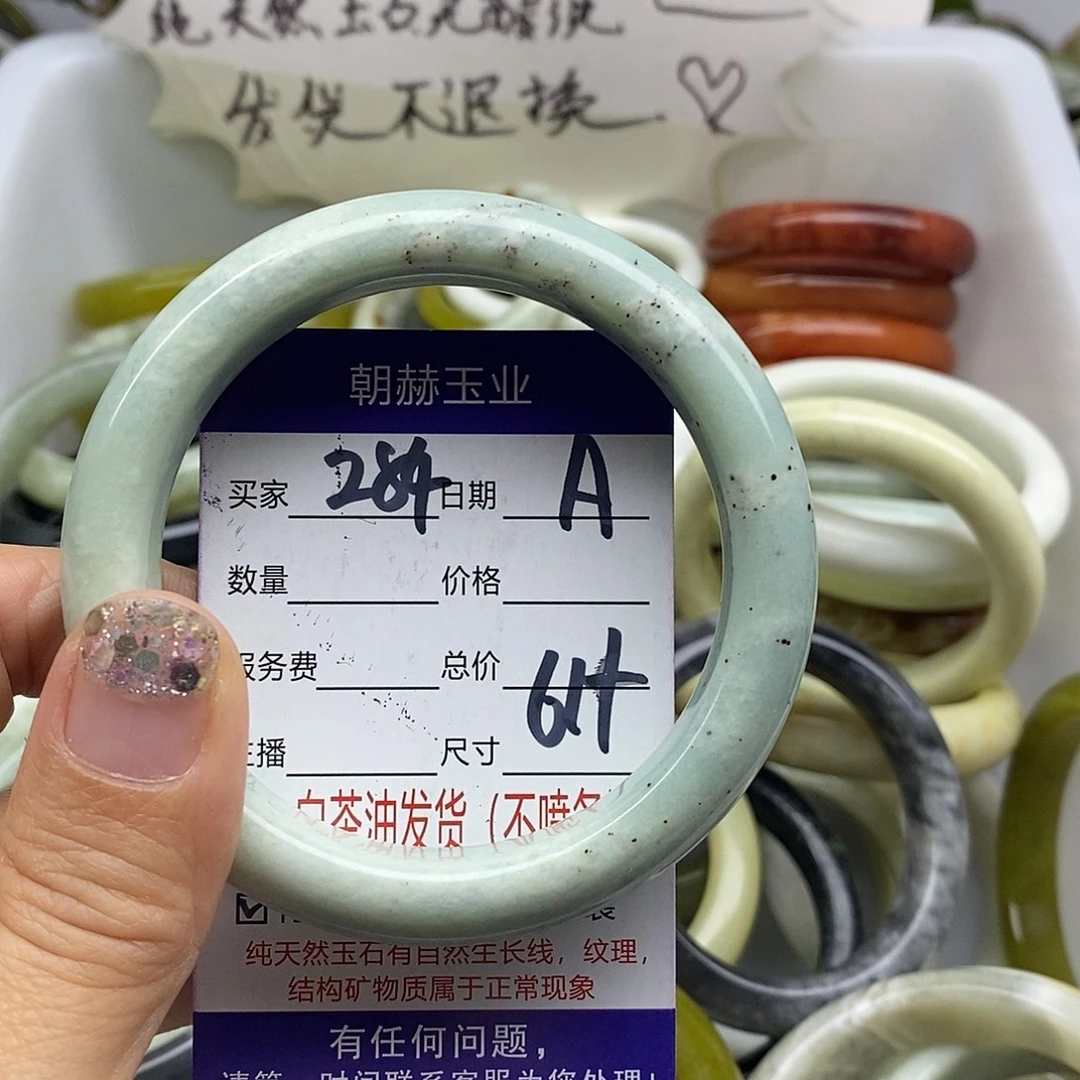 纯天然玉石无酸洗
发货不退换
朝赫玉业
买家 284 日期 A
数量 价格
服务费 总价
主播 尺寸 61
白茶油发货（不喷名
纯天然玉石有自然生长线，纹理，
结构矿物质属于正常现象
有任何问题，
请第一时间联系客服为您处理！